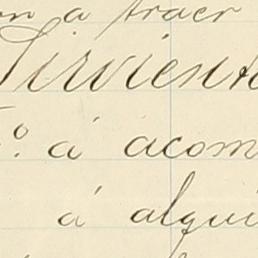 on a traer
Sirvient
º á acom
á alqui